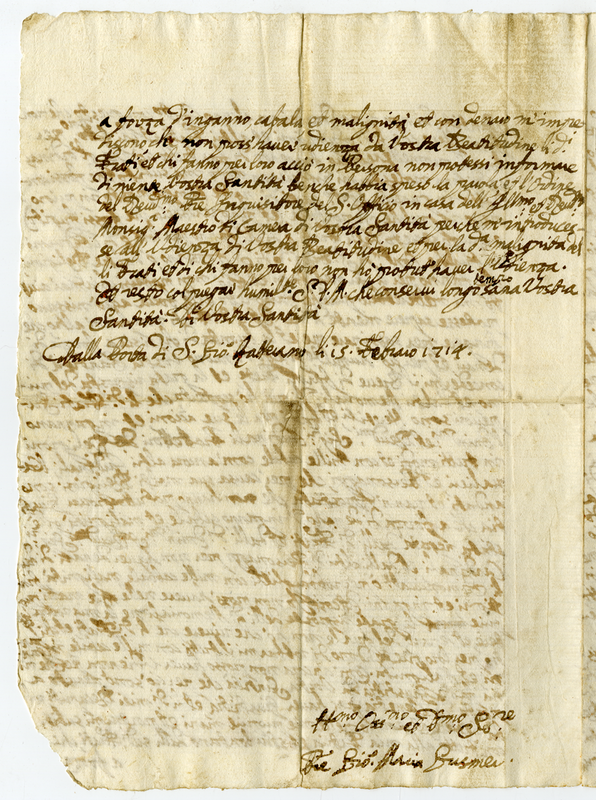 a forza d'inganno cabala et malignità et con denaro m'impe
discono che non possi haver udienza da Vostra Beatitudine li d.i
Frati et chi fanno per loro acciò in Persona non potessi informare
di niente Vostra Santità benche habbia speso la parola et l'Ordine
del Rev.mo P.re Inquisitore del S. Offitio in casa dell' Ill.mo et Rev.mo
Monsig. Maestro di Camera di Vostra Santità perche m'introduces-
se all' Udienza di Vostra Beatitudine et per la d.a malignità
li Frati et di chi fanno per loro non ho potuto haver l'Udienza.
Et resto col pregar humilt. S. D. M. che conservi longo tempo sana Vostra
Santità. Di Vostra Santità
Dalla Porta di S. Gio. Laterano li 15. Febraro 1714.
H.mo et D.mo
Gio. Maria